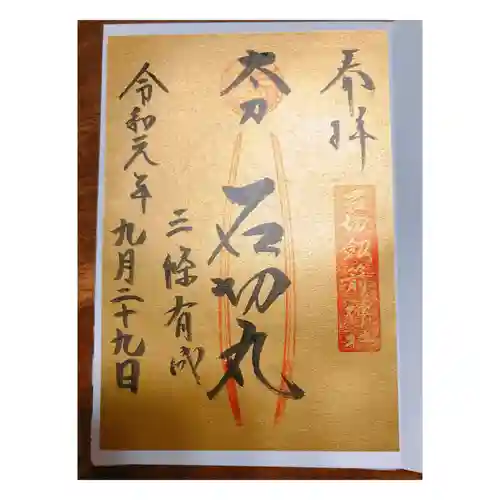 奉拝
石切劔箭神社
太刀
石切丸
三條有成
令和元年九月二十九日